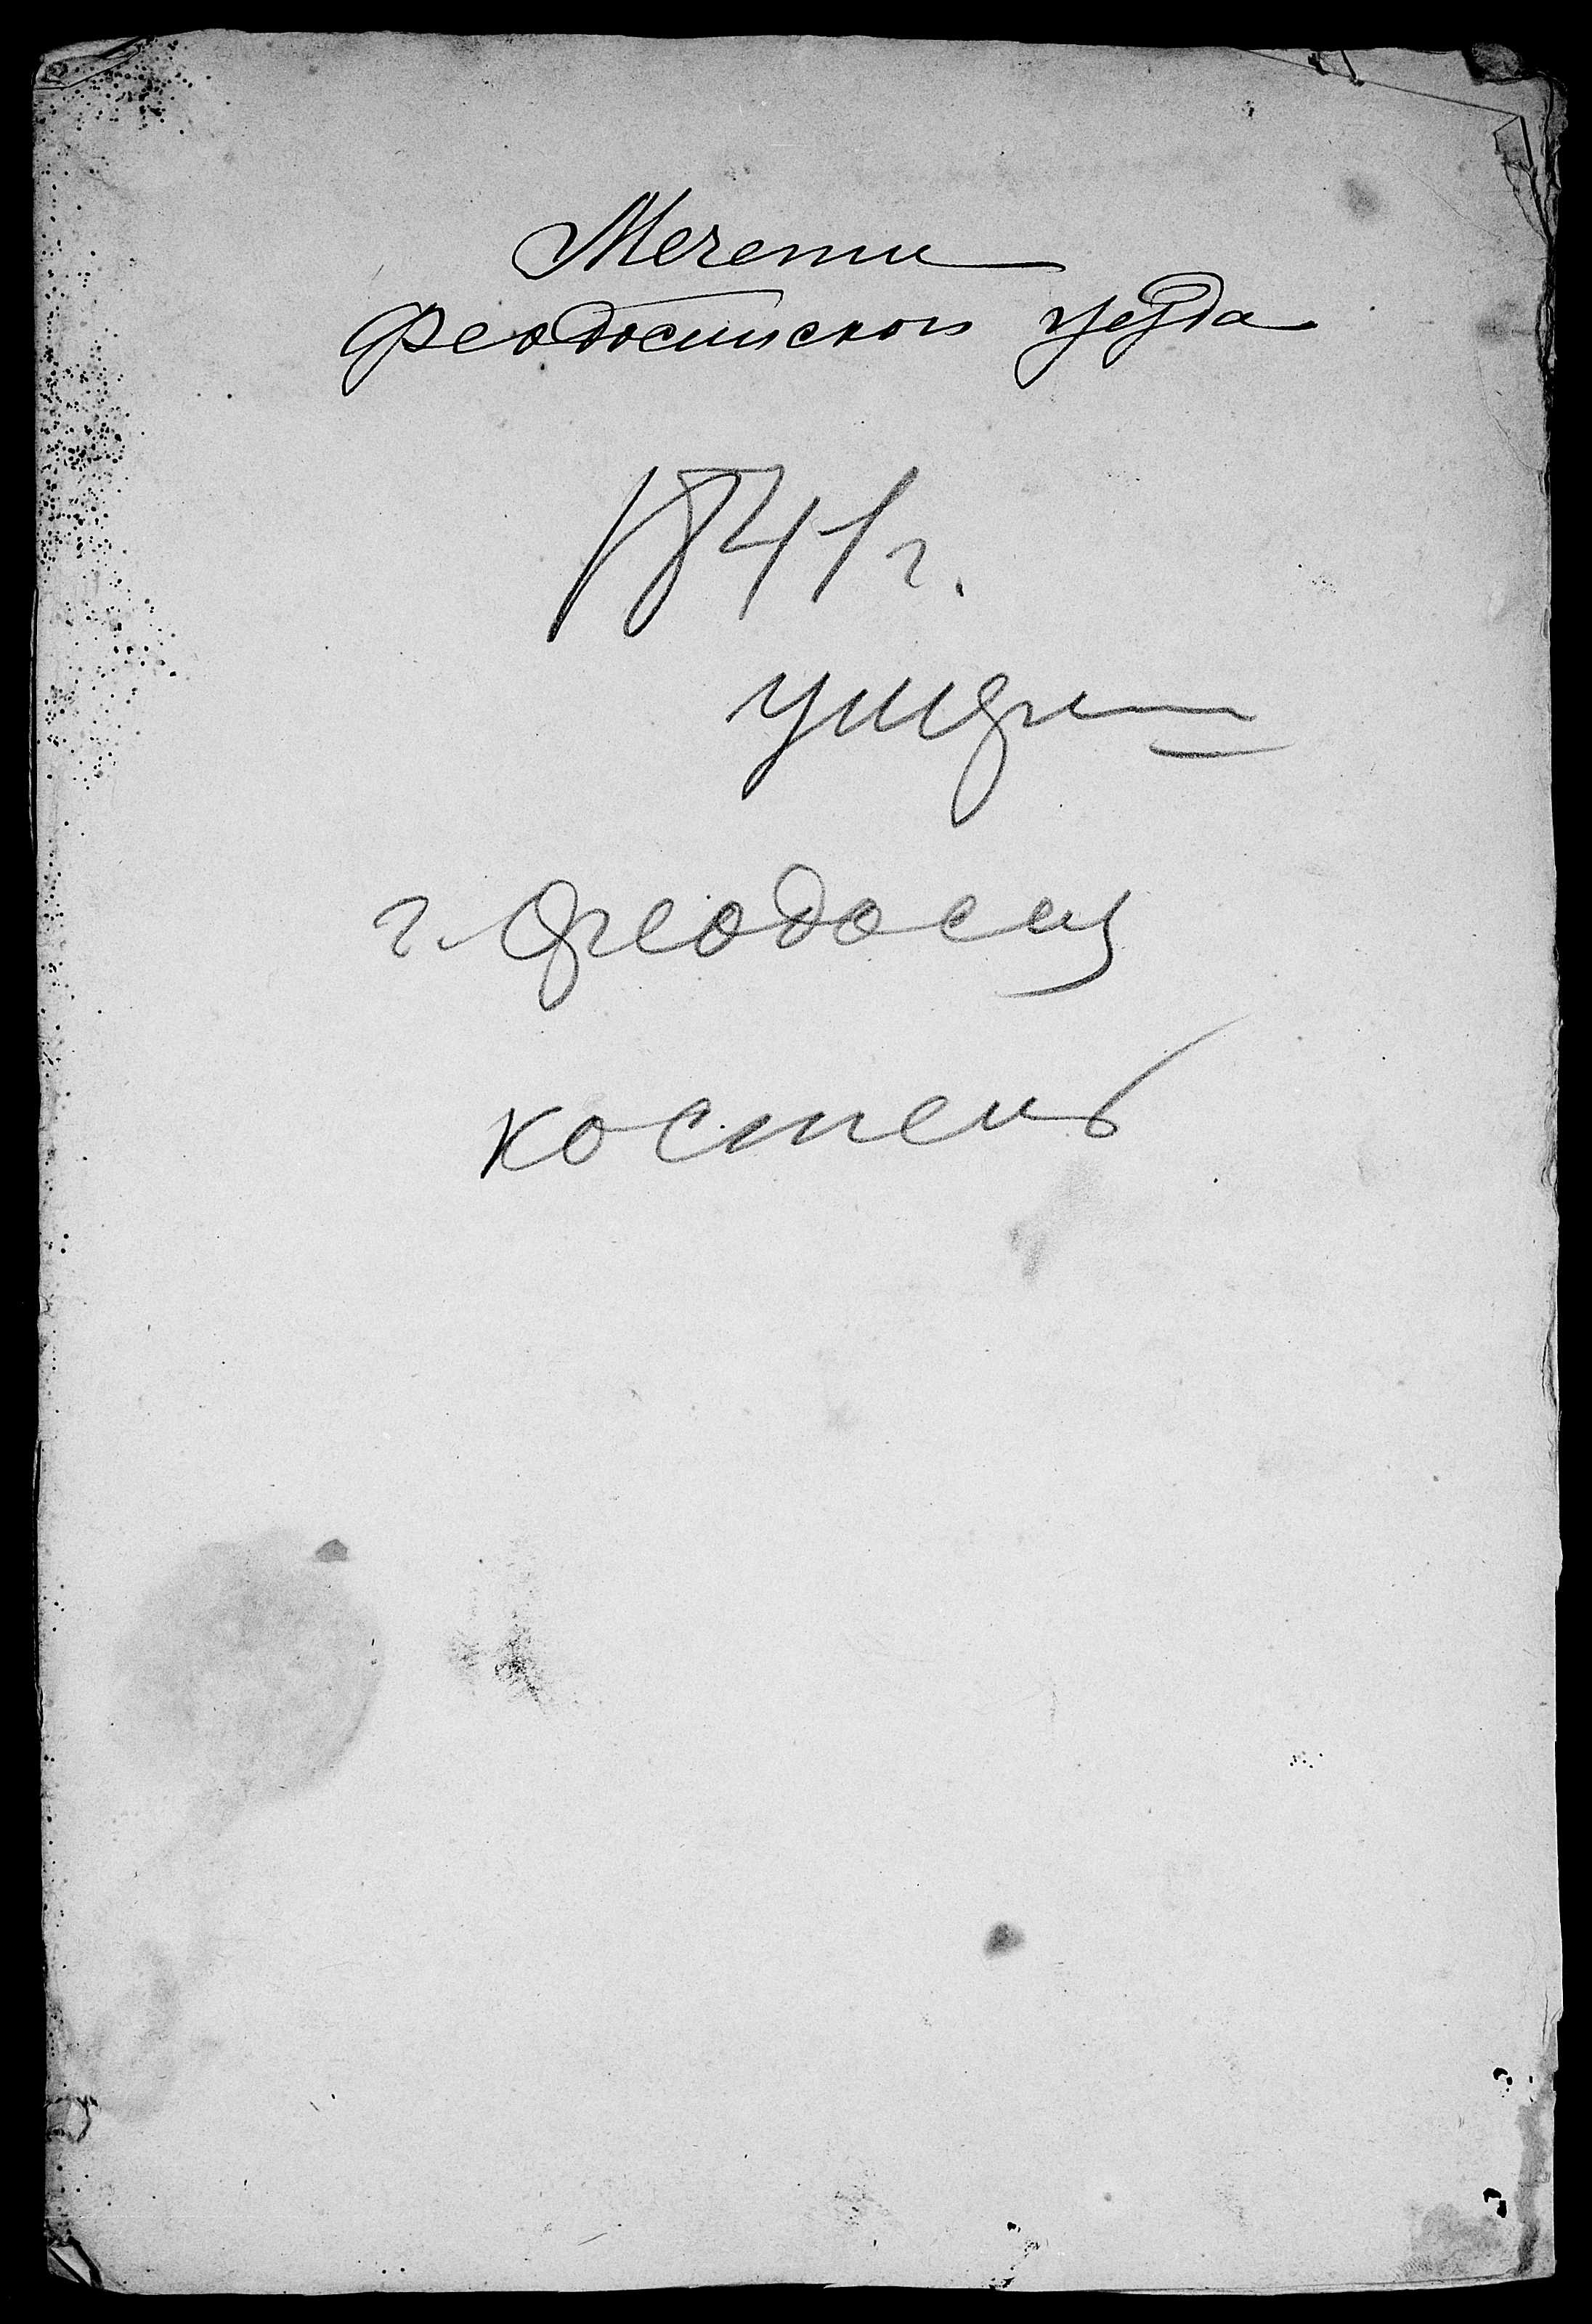 Мечети
Феодосийского уезда
1841 г.
умерш
г. Феодосия
костель